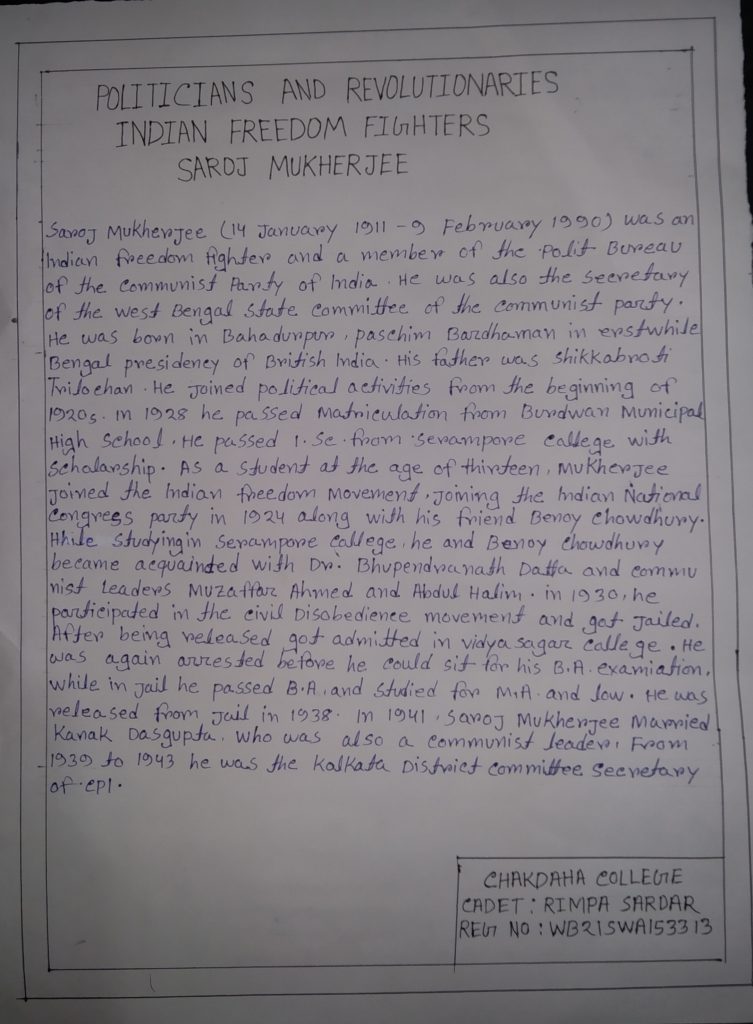 POLITICIANS AND REVOLUTIONARIES
INDIAN FREEDOM FIGHTERS
SAROJ MUKHERJEE
Saroj Mukherjee (14 January 1911 - 9 February 1990) was an
Indian freedom fighter and a member of the Polit Bureau
of the Communist Party of India. He was also the Secretary
of the west Bengal State Committee of the communist party.
He was born in Bahadurpur, paschim Bardhaman in erstwhile
Bengal presidency of British India. His father was Shikkabroti
Trilochan. He joined political activities from the beginning of
1920s. in 1928 he passed Matriculation from Burdwan Municipal
High School. He passed I. Sc. from Serampore College with
Scholarship. As a student at the age of thirteen, Mukherjee
joined the Indian freedom Movement, joining the Indian National
Congress party in 1924 along with his friend Benoy Chowdhury.
While Studyingin Serampore College, he and Benoy Chowdhury
became acquainted with Dr. Bhupendranath Datta and commu
nist Leaders Muzaffar Ahmed and Abdul Halim. in 1930, he
participated in the civil Disobedience movement and got Jailed.
After being released got admitted in vidyasagar college. He
was again arrested before he could sit for his B.A. examiation.
while in jail he passed B.A. and studied for M.A. and low. He was
released from Jail in 1938. In 1941, Saroj Mukherjee Married
Kanak Dasgupta, who was also a communist leader. From
1939 to 1943 he was the Kolkata District Committee Secretary
of CPI.
CHAKDAHA COLLEGE
CADET: RIMPA SARDAR
REG NO: WB21SWA153313